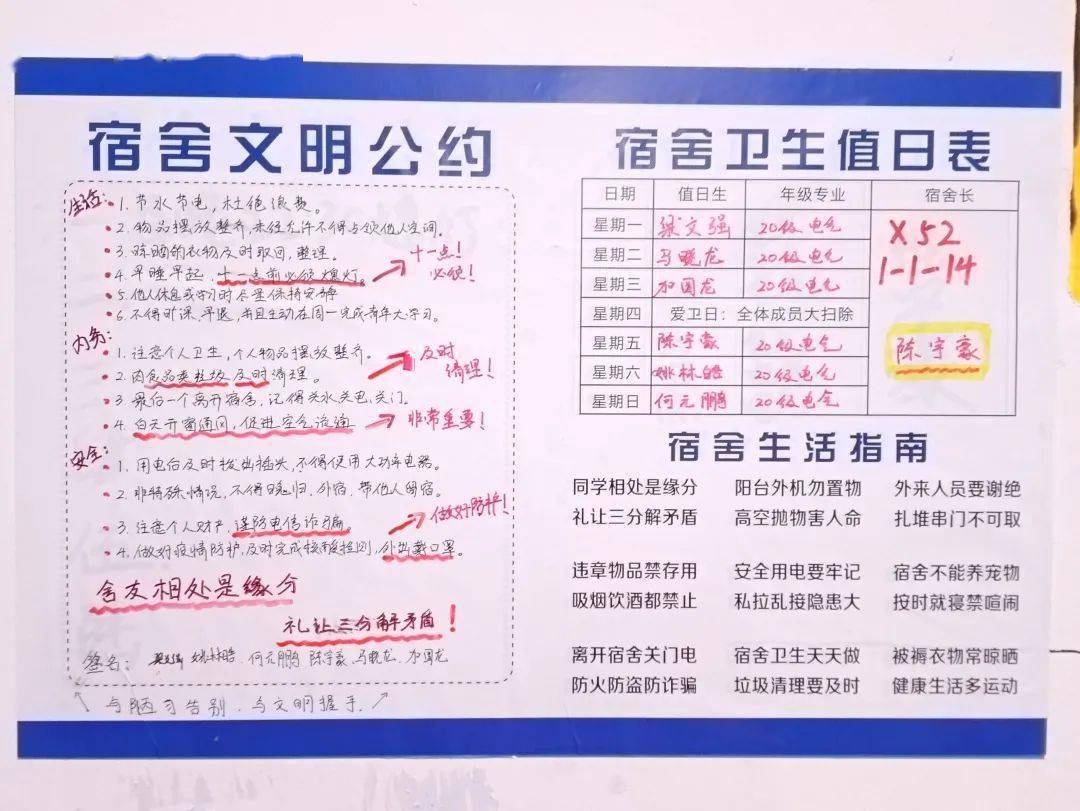 宿舍文明公约
生活:
1. 节水节电,杜绝浪费。
2. 物品摆放整齐,未经允许不得占领他人空间。
3. 晾晒的衣物及时取回,整理。
4. 早睡早起,十一点前必须熄灯。
十一点!
必须!
5. 他人休息或学习时尽量保持安静
6. 不得旷课、早退,并且主动在周一完成青年大学习。
内务:
1. 注意个人卫生,个人物品摆放整齐。
2. 肉食品类垃圾及时清理。
及时
清理!
3. 最后一个离开宿舍,记得关水关电,关门。
4. 白天开窗通风,促进空气流通
非常重要!
安全:
1. 用电后及时拔出插头,不得使用大功率电器。
2. 非特殊情况,不得晚归、外宿、带他人留宿。
3. 注意个人财产,谨防电信诈骗。
做好防护!
4. 做好疫情防护,及时完成核酸检测,外出戴口罩。
舍友相处是缘分
礼让三分解矛盾!
签名: 姚林皓 何元鹏 陈宇豪、马晓龙、加国龙
与陋习告别、与文明握手
宿舍卫生值日表
日期 值日生 年级专业 宿舍长
星期一 梁文强 20级电气
X52
1-1-14
星期二 马晓龙 20级电气
星期三 加国龙 20级电气
星期四 爱卫日:全体成员大扫除
星期五 陈宇豪 20级电气
陈宇豪
星期六 姚林皓 20级电气
星期日 何元鹏 20级电气
宿舍生活指南
同学相处是缘分 阳台外机勿置物 外来人员要谢绝
礼让三分解矛盾 高空抛物害人命 扎堆串门不可取
违章物品禁存用 安全用电要牢记 宿舍不能养宠物
吸烟饮酒都禁止 私拉乱接隐患大 按时就寝禁喧闹
离开宿舍关门电 宿舍卫生天天做 被褥衣物常晾晒
防火防盗防诈骗 垃圾清理要及时 健康生活多运动